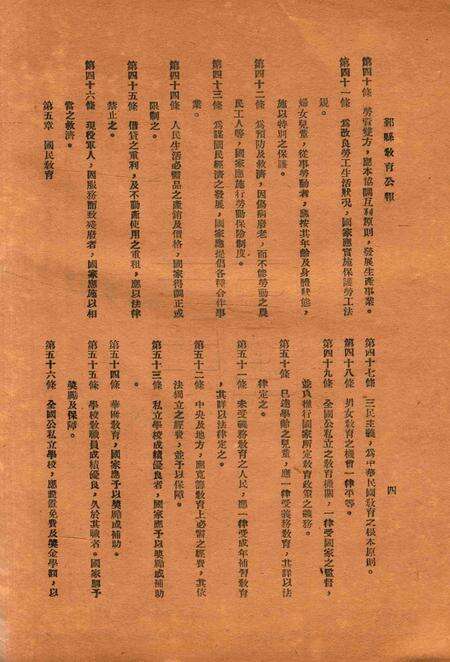 郫縣教育公報
第四十條　勞資雙方，應本協調互利原則，發展生產事業。
第四十一條　為改良勞工生活狀況，國家應實施保護勞工法
規。
婦女兒童，從事勞動者，應按其年齡及身體狀態，
施以特別之保護。
第四十二條　為預防及救濟，因傷病廢老，而不能勞動之農
民工人等，國家應施行勞動保險制度。
第四十三條　為謀國民經濟之發展，國家應提倡各種合作事
業。
第四十四條　人民生活必需品之產銷及價格，國家得調正或
限制之。
第四十五條　借貸之重利，及不動產使用之重租，應以法律
禁止之。
第四十六條　現役軍人，因服務而致殘廢者，國家應施以相
當之救濟。
第五章　國民教育
四
第四十七條　三民主義，為中華民國教育之根本原則。
第四十八條　男女教育之機會一律平等。
第四十九條　全國公私立之教育機關，一律受國家之監督，
並負推行國家所定教育政策之義務。
第五十條　已達學齡之兒童，應一律受義務教育，其詳以法
律定之。
第五十一條　未受義務教育之人民，應一律受成年補習教育
，其詳以法律定之。
第五十二條　中央及地方，應寬籌教育上必需之經費，其依
法獨立之經費，並予以保障。
第五十三條　私立學校成績優良者，國家應予以獎勵或補助
。
第五十四條　華僑教育，國家應予以獎勵或補助。
第五十五條　學校教職員成績優良，久於其職者。國家應予
獎勵及保障。
第五十六條　全國公私立學校，應設置免費及獎金學額，以